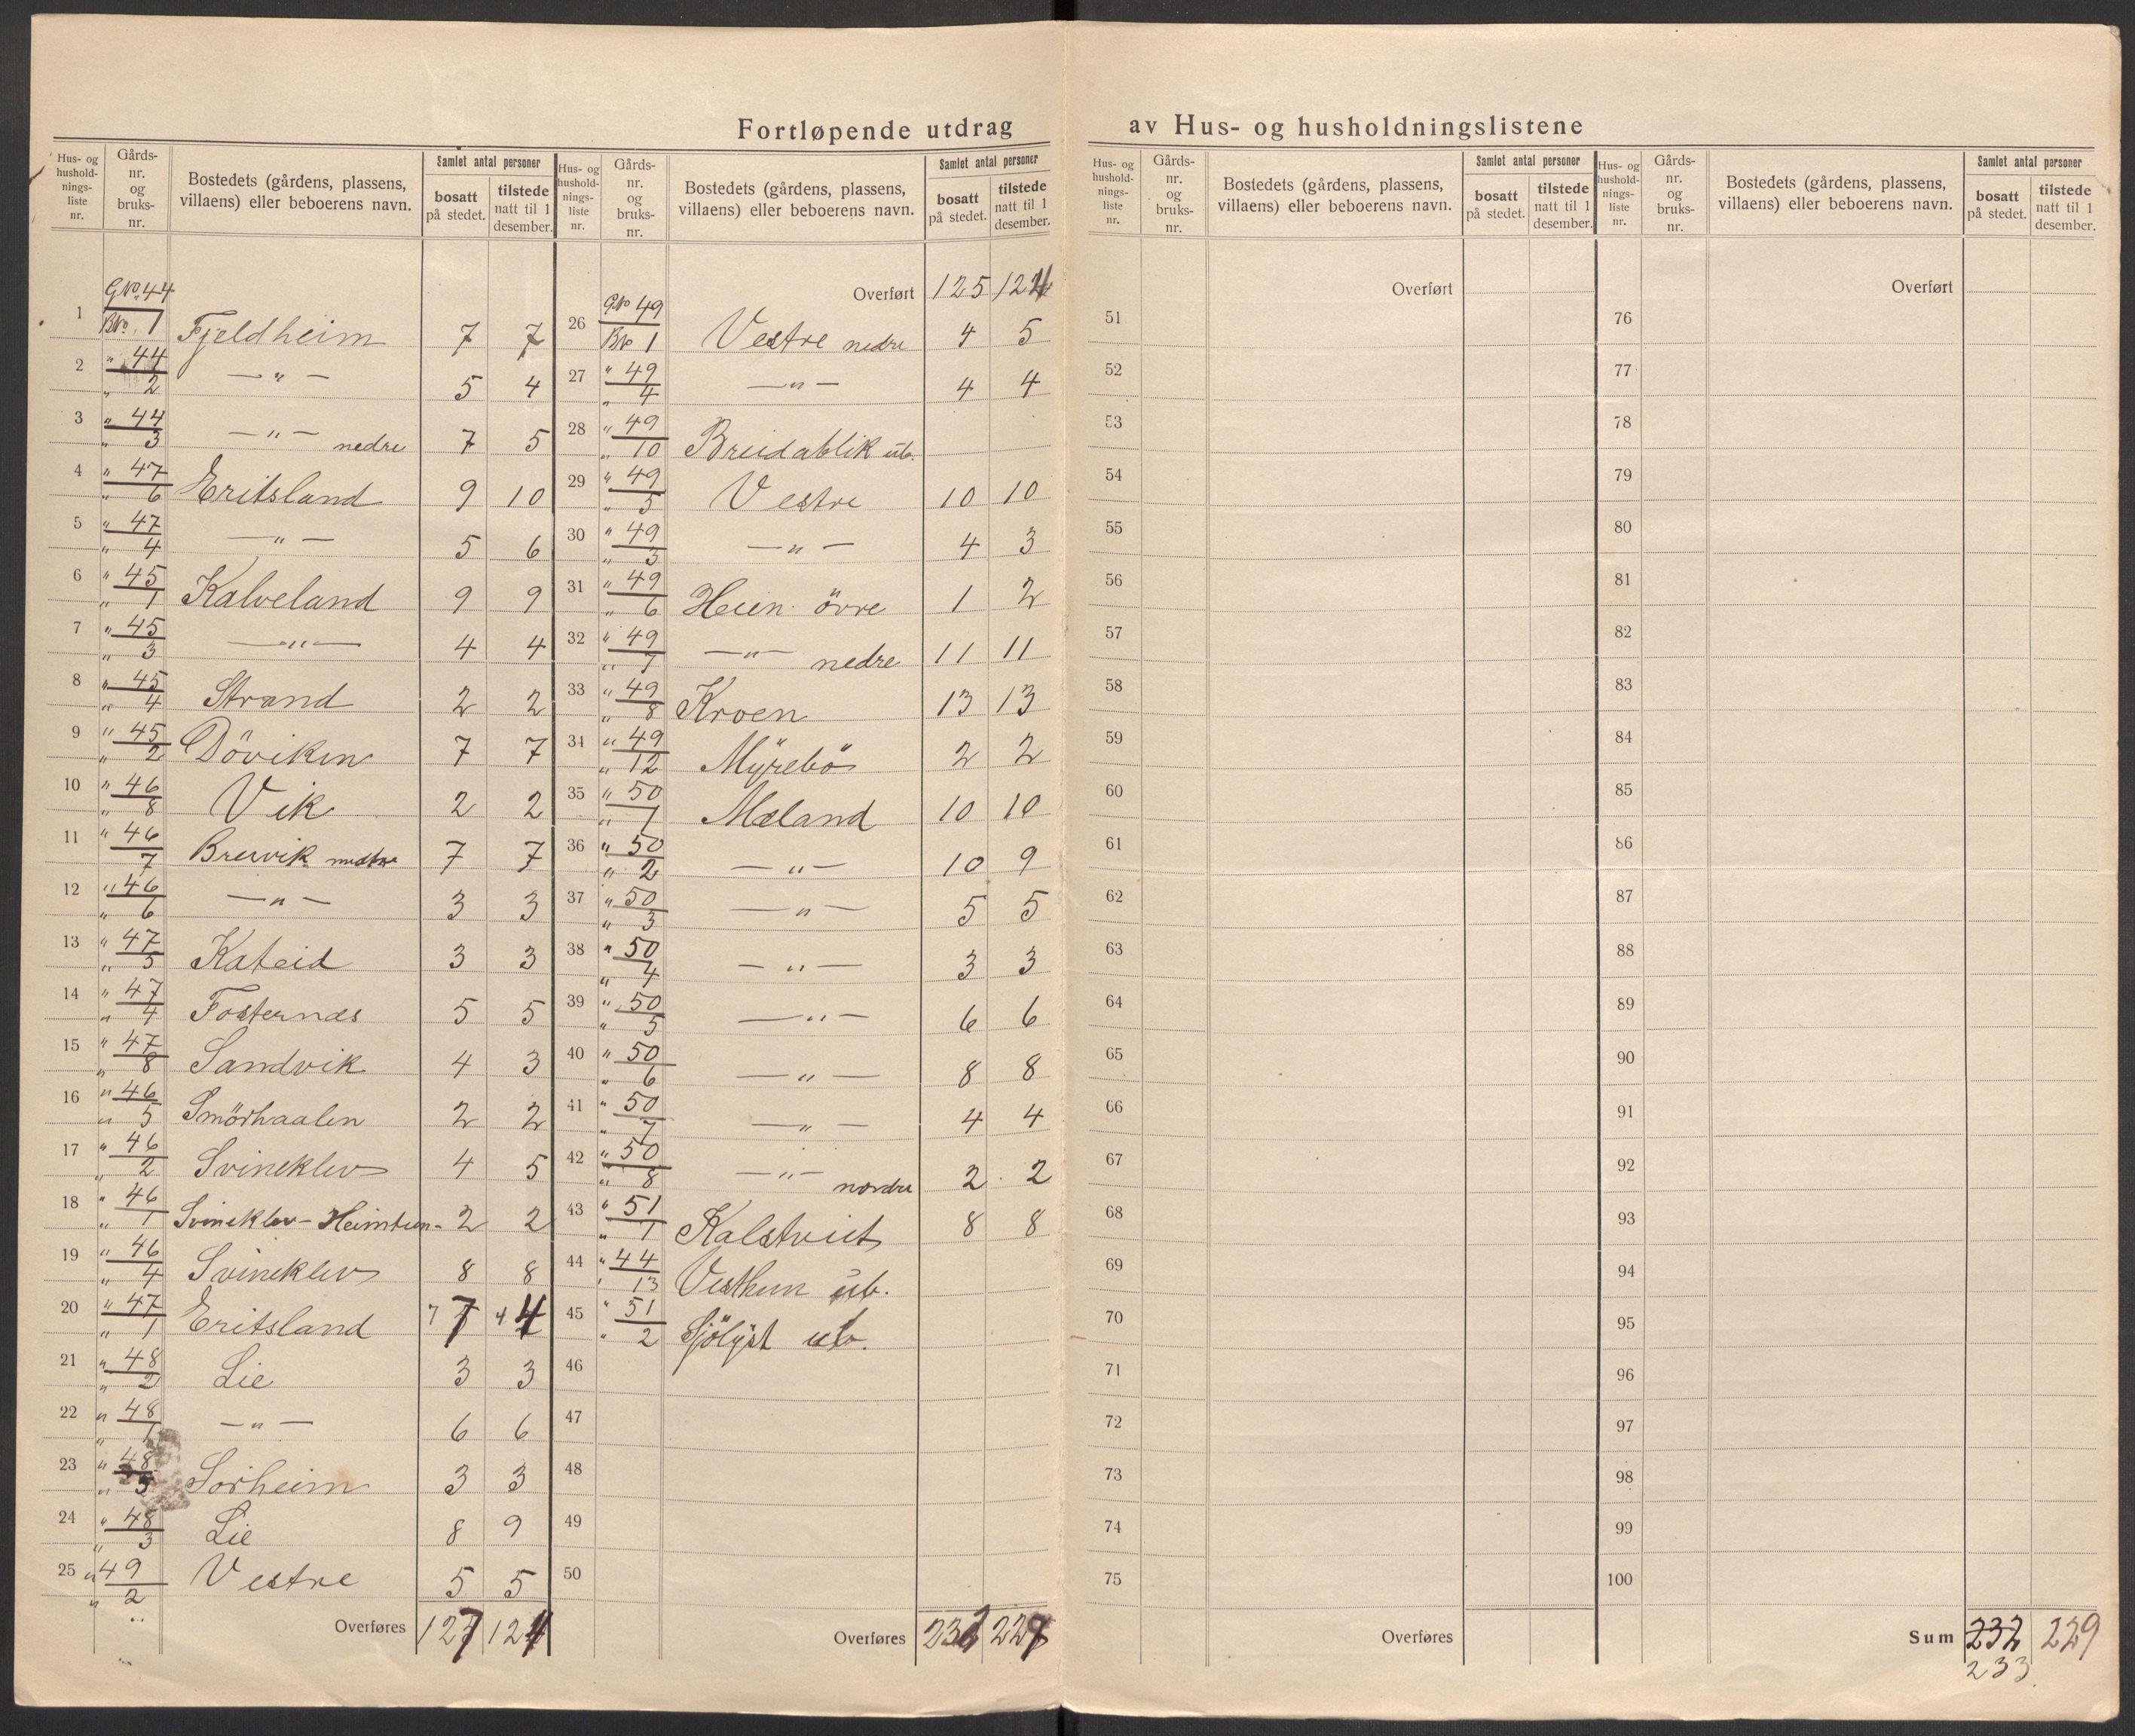 Fortløpende utdrag av Hus- og husholdningslistene
Hus- og husholdnings-liste nr. | Gårds-nr. og bruks-nr. | Bostedets (gårdens, plassens, villaens) eller beboerens navn. | Samlet antal personer bosatt på stedet. | tilstede natt til 1 desember.
1 GNo. 44 / BNo. 1 Fjeldheim 7 7
2 " 44 / " 2 — " — 5 4
3 " 44 / " 3 — " — nedre 7 5
4 " 47 / " 6 Eritsland 9 10
5 " 47 / " 4 — " — 5 6
6 " 45 / " 1 Kalveland 9 9
7 " 45 / " 3 — " — 4 4
8 " 45 / " 4 Strand 2 2
9 " 45 / " 2 Döviken 7 7
10 " 46 / " 8 Vik 2 2
11 " 46 / 7 Brervik 7 7
12 " 46 / " 6 — " — 3 3
13 " 47 / " 5 Kateid 3 3
14 " 47 / " 4 Fosternæs 5 5
15 " 47 / " 8 Sandvik 4 3
16 " 46 / " 5 Smörhaalen 2 2
17 " 46 / " 2 Svineklev 4 5
18 " 46 / " 1 Svineklev - Heimtun - 2 2
19 " 46 / " 4 Svineklev 8 8
20 " 47 / " 1 Eritsland 7 7 4 4
21 " 48 / " 2 Lie 3 3
22 " 48 / " 1 — " — 6 6
23 " 48 / " 5 Sörheim 3 3
24 " 48 / " 3 Lie 8 9
25 " 49 / " 2 Vestre 5 5
Overføres 127 124
Hus- og husholdnings-liste nr. | Gårds-nr. og bruks-nr. | Bostedets (gårdens, plassens, villaens) eller beboerens navn. | Samlet antal personer bosatt på stedet. | tilstede natt til 1 desember.
Overført 125 124
26 GNo 49 / BNo 1 Vestre nedre 4 5
27 " 49 / " 4 — " — 4 4
28 " 49 / " 10 Breidablik ub.
29 " 49 / " 5 Vestre 10 10
30 " 49 / " 3 — " — 4 3
31 " 49 / " 6 Heien övre 1 2
32 " 49 / " 7 — " — nedre 11 11
33 " 49 / " 8 Kroen 13 13
34 " 49 / " 12 Myrebö 2 2
35 " 50 / " 1 Mæland 10 10
36 " 50 / " 2 — " — 10 9
37 " 50 / " 3 — " — 5 5
38 " 50 / " 4 — " — 3 3
39 " 50 / " 5 — " — 6 6
40 " 50 / " 6 — " — 8 8
41 " 50 / " 7 — " — 4 4
42 " 50 / " 8 — " — nordre 2 2
43 " 51 / " 1 Kalstveit 8 8
44 " 44 / " 13 Vestheim ub.
45 " 51 / " 2 Sjölyst ub.
46
47
48
49
50
Overføres 232 229
Hus- og husholdnings-liste nr. | Gårds-nr. og bruks-nr. | Bostedets (gårdens, plassens, villaens) eller beboerens navn. | Samlet antal personer bosatt på stedet. | tilstede natt til 1 desember.
Overført
51
52
53
54
55
56
57
58
59
60
61
62
63
64
65
66
67
68
69
70
71
72
73
74
75
Overføres
Hus- og husholdnings-liste nr. | Gårds-nr. og bruks-nr. | Bostedets (gårdens, plassens, villaens) eller beboerens navn. | Samlet antal personer bosatt på stedet. | tilstede natt til 1 desember.
Overført
76
77
78
79
80
81
82
83
84
85
86
87
88
89
90
91
92
93
94
95
96
97
98
99
100
Sum 232 229
233